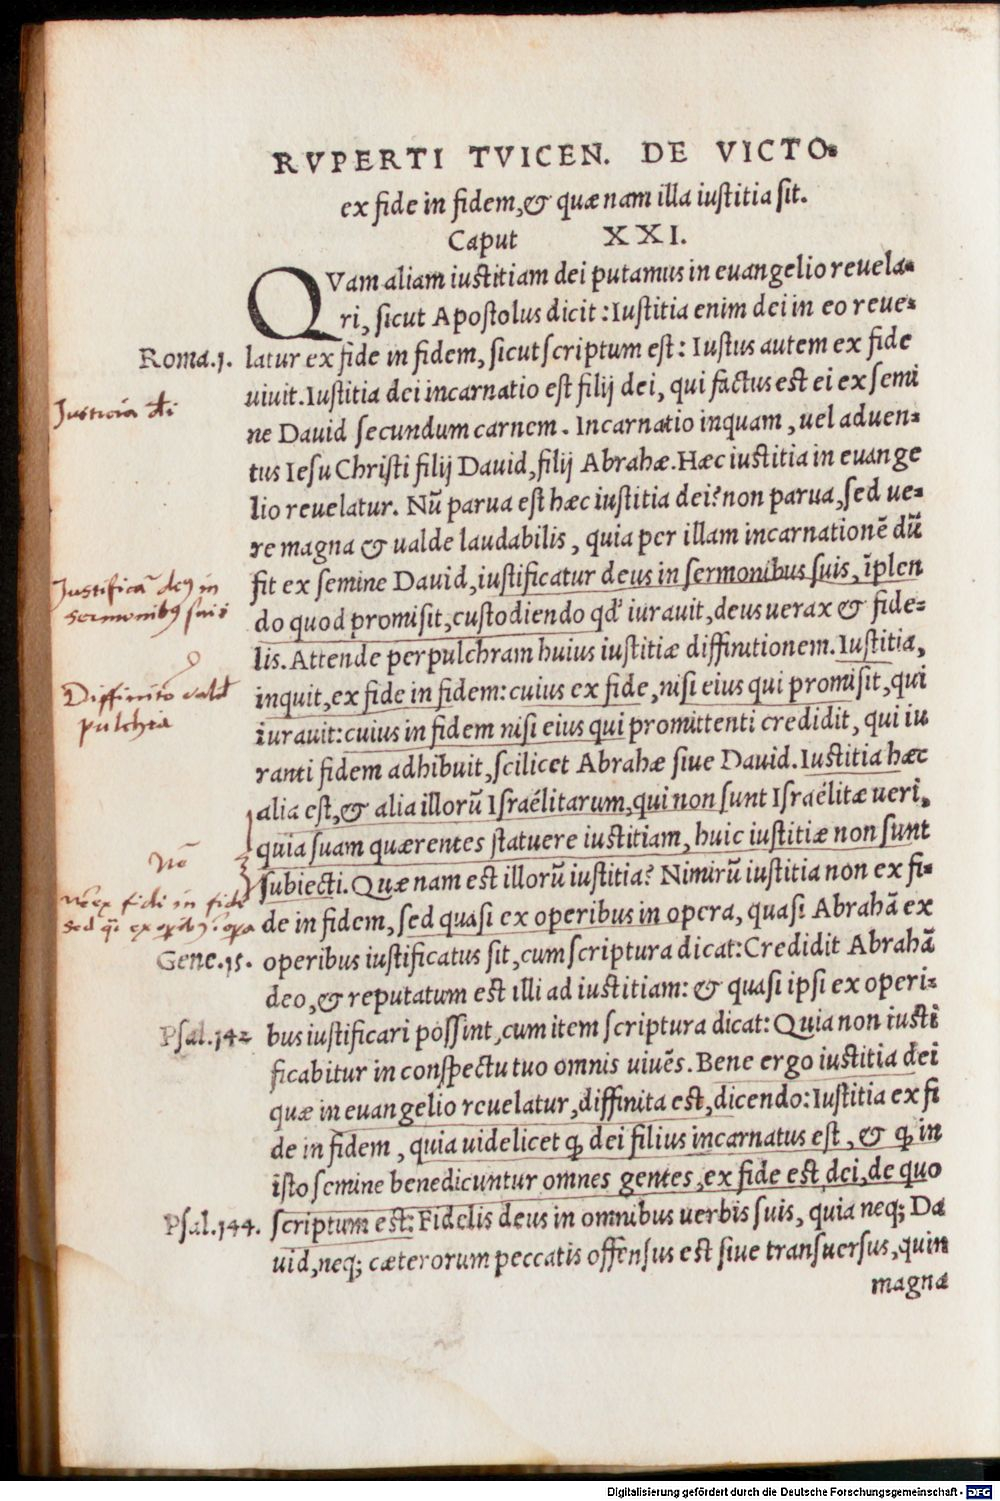 RVPERTI TVICEN. DE VICTO-
ex fide in fidem,& quæ nam illa iustitia sit.
Caput XXI.
QVam aliam iustitiam dei putamus in euangelio reuela-
ri, sicut Apostolus dicit : Iustitia enim dei in eo reue-
Roma.1. latur ex fide in fidem, sicut scriptum est : Iustus autem ex fide
uiuit. Iustitia dei incarnatio est filij dei, qui factus est ei ex semi
Justicia dei
ne Dauid secundum carnem. Incarnatio inquam, uel aduen-
tus Iesu Christi filij Dauid, filij Abrahæ. Hæc iustitia in euange
lio reuelatur. Nũ parua est hæc iustitia dei? non parua, sed ue-
re magna & ualde laudabilis, quia per illam incarnationẽ dũ
fit ex semine Dauid, iustificatur deus in sermonibus suis, ĩplen
Justificã deꝰ in
sermonibꝰ suis
do quod promisit, custodiendo qd' iurauit, deus uerax & fide-
lis. Attende perpulchram huius iustitiæ diffinitionem. Iustitia,
inquit, ex fide in fidem: cuius ex fide, nisi eius qui promisit, qui
Diffinitio vald
pulchra
iurauit: cuius in fidem nisi eius qui promittenti credidit, qui iu
ranti fidem adhibuit, scilicet Abrahæ siue Dauid. Iustitia hæc
alia est, & alia illorũ Israélitarum, qui non sunt Israélitæ ueri,
quia suam quærentes statuere iustitiam, huic iustitiæ non sunt
subiecti. Quæ nam est illorũ iustitia? Nimirũ iustitia non ex fi-
Nõ
ex fidi in fidẽ
sed qĩ ex opibꝰ ĩ opa
de in fidem, sed quasi ex operibus in opera, quasi Abrahã ex
Gene.15. operibus iustificatus sit, cum scriptura dicat: Credidit Abrahã
deo, & reputatum est illi ad iustitiam: & quasi ipsi ex operi-
Psal.142 bus iustificari possint, cum item scriptura dicat: Quia non iusti
ficabitur in conspectu tuo omnis uiuẽs. Bene ergo iustitia dei
quæ in euangelio reuelatur, diffinita est, dicendo: Iustitia ex fi
de in fidem, quia uidelicet ꝙ dei filius incarnatus est, & ꝙ in
isto semine benedicuntur omnes gentes, ex fide est dei, de quo
Psal.144. scriptum est: Fidelis deus in omnibus uerbis suis, quia neq; Da
uid, neq; cæterorum peccatis offensus est siue transuersus, quin
magna
Digitalisierung gefördert durch die Deutsche Forschungsgemeinschaft - DFG